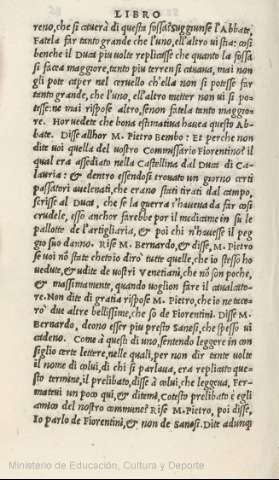 LIBRO
reno, che si cauerà di questa fossa? Suggiunse l'Abbate,
Fatela far tanto grande che l'uno, ell'altro ui stia: cosi
benche il Duca piu uolte replicasse che quanto la fossa
si facea maggiore, tanto piu terren si cauaua, mai non
gli potè caper nel ceruello ch'ella non si potesse far
tanto grande, che l'uno, ell'altro metter non ui si po-
tesse: ne mai rispose altro, senon fatela tanto maggio-
re. Hor uedete che bona estimatiua haueua questo Ab-
bate. Disse allhor M. Pietro Bembo: Et perche non
dite uoi quella del uostro Commissario Fiorentino? il
qual era assediato nella Castellina dal Duca di Ca-
lauria: & dentro essendosi trouato un giorno certi
passatori auelenati, che erano stati tirati dal campo,
scrisse al Duca, che se la guerra s'haueua da far cosi
crudele, esso anchor farebbe por il medicame in su le
pallotte de l'artigliaria, & poi chi n'hauesse il peg
gio suo danno. Rise M. Bernardo, & disse, M. Pietro
se uoi nō state cheto io dirò tutte quelle, che io stesso ho
uedute, & udite de uostri Venetiani, che nō son poche,
& massimamente, quando uoglion fare il caualcato-
re. Non dite di gratia rispose M. Pietro, che io ne tace-
rò due altre bellissime, che so de Fiorentini. Disse M.
Bernardo, deono esser piu presto Sanesi, che spesso ui
cadeno. Come à questi dì uno, sentendo leggere in con
siglio certe lettere, nelle quali, per non dir tante uolte
il nome di colui, di chi si parlaua, era replicato que-
sto termine, il prelibato, disse à colui, che leggeua, Fer-
mateui un poco qui, & ditemi, Cotesto prelibato è egli
amico del nostro commune? Rise M. Pietro, poi disse,
Io parlo de Fiorentini, & non de Sanesi. Dite adunq
Ministerio de Educación, Cultura y Deporte